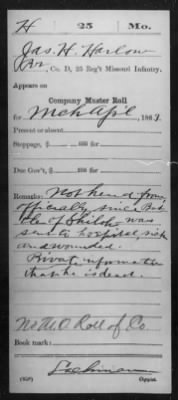 H 25 Mo.
Jas. H. Harlow
, Co. D, 25 Reg't Missouri Infantry.
Appears on
Company Muster Roll
for Mch & Apl, 186
Present or absent
Stoppage, $ 100 for
Due Gov't, $ 100 for
Remarks: Not heard from
officially since Bat
tle of Shiloh, was
sent to hospital, sick
and wounded.
Private information
that he is dead.
No M.O. Roll of Co.
Book mark:
(858) Copyist.